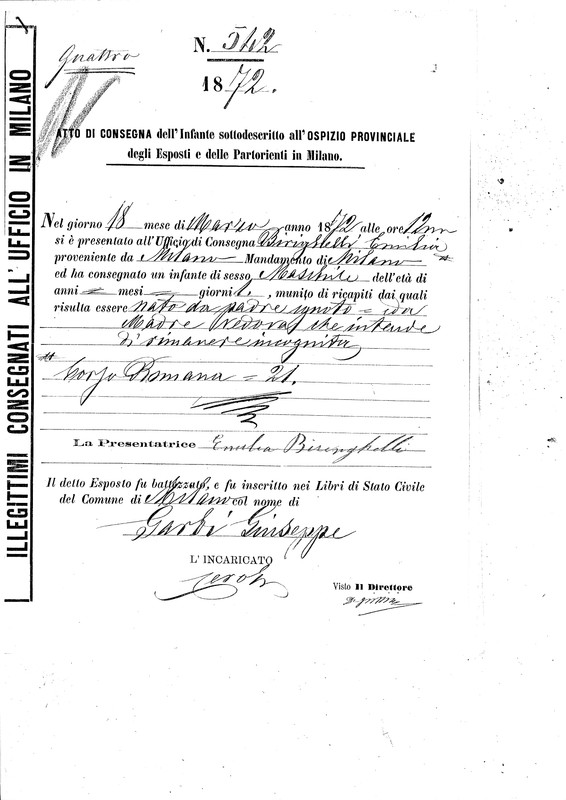 ILLEGITTIMI CONSEGNATI ALL' UFFICIO IN MILANO
Quattro
N. 542
1872.
ATTO DI CONSEGNA dell' Infante sottodescritto all' OSPIZIO PROVINCIALE
degli Esposti e delle Partorienti in Milano.
Nel giorno 18 mese di Marzo anno 1872 alle ore 12
si è presentato all'Ufficio di Consegna Biringhelli Emilia
proveniente da Milano Mandamento di Milano
ed ha consegnato un infante di sesso Maschile dell'età di
anni = mesi = giorni 1. , munito di ricapiti dai quali
risulta essere nato da padre ignoto = e da
Madre Vedova, che intende
di rimanere incognita
Corso Romana = 21.
La Presentatrice Emilia Biringhelli
Il detto Esposto fu battezzato, e fu inscritto nei Libri di Stato Civile
del Comune di Milano col nome di
Garbi Giuseppe
L' INCARICATO
Visto Il Direttore